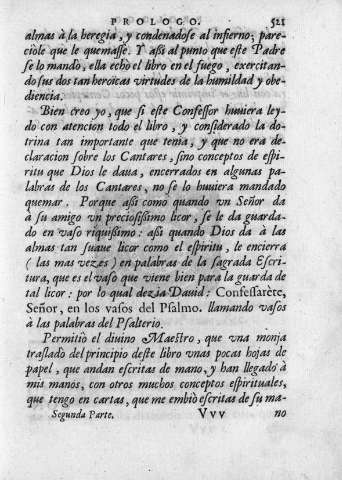 PROLOGO. 521
almas à la heregia, y condenadose al infierno; pare-
ciole que le quemasse. Y assi al punto que este Padre
se lo mandò, ella echo el libro en el fuego, exercitan-
do sus dos tan heroicas virtudes de la humildad y obe-
diencia.
Bien creo yo, que si este Confessor huviera ley-
do con atencion todo el libro, y considerado la do-
trina tan importante que tenia, y que no era de-
claracion sobre los Cantares, sino conceptos de espi-
ritu que Dios le daua, encerrados en algunas pa-
labras de los Cantares, no se lo huuiera mandado
quemar. Porque assi como quando vn Señor da
à su amigo vn preciosissimo licor, se le da guarda-
do en vaso riquissimo: assi quando Dios da à las
almas tan suaue licor como el espiritu, le encierra
(las mas vezes) en palabras de la sagrada Escri-
tura, que es el vaso que viene bien para la guarda de
tal licor: por lo qual dezia Dauid: Confessarète,
Señor, en los vasos del Psalmo. llamando vasos
à las palabras del Psalterio.
Permitiò el diuino Maestro, que vna monja
traslado del principio deste libro vnas pocas hojas de
papel, que andan escritas de mano, y han llegado à
mis manos, con otros muchos conceptos espirituales,
que tengo en cartas, que me embiò escritas de su ma-
Segunda Parte. Vvv no